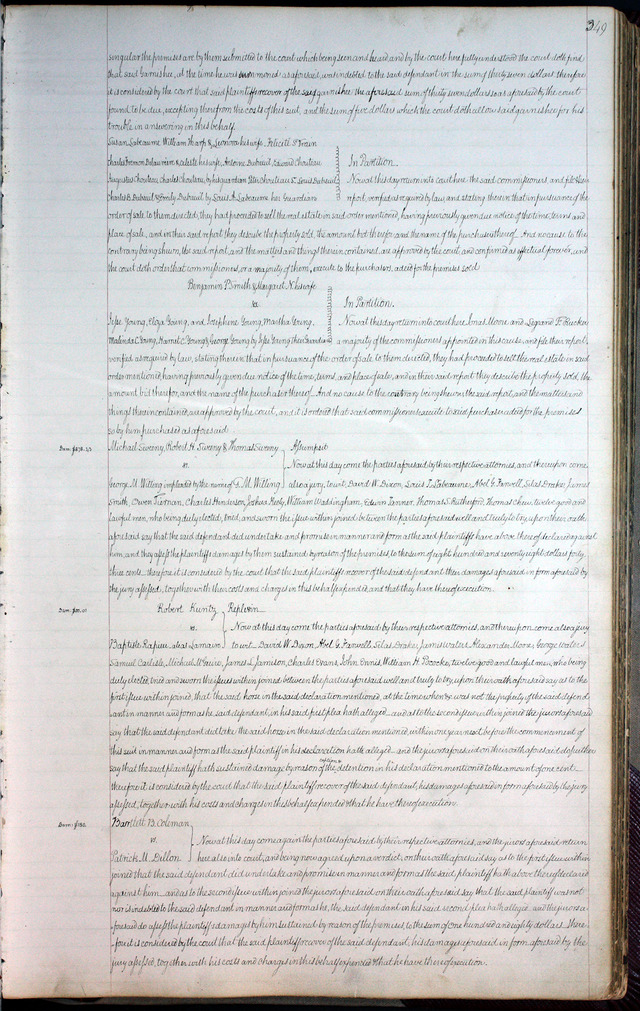 349
singular the premises are by them submitted to the court which being seen and heard and by the court here fully understood the court doth find
that said Garnishee, at the time he was summoned as aforesaid, was indebted to the said defendant in the sum of thirty seven dollars therefore
it is considered by the court that said plaintiff recover of the said garnishee the aforesaid sum of thirty seven dollars so as aforesaid by the court
found to be due, excepting therefrom the costs of this suit, and the sum of five dollars which the court doth allow said garnishee for his
trouble in answering in this behalf.
Susan Labeaume William Tharp & Leonora his wife, Felicité
Charles Fremon Delauriere & Celeste his wife, Antoine Dubreuil, Edward Chouteau
In Partition
Augustus Chouteau, Charles Chouteau, by his guardian Peter Chouteau Sr Louis Dubreuil
Now at this day return into court here the said commissioners and file their
Charles B. Dubreuil & Emily Dubreuil by Louis A. Labeaume her Guardian
report, verified as required by law, and stating therein that in pursuance of the
order of sale to them directed, they had proceeded to sell the real estate in said order mentioned, having previously given due notice of the time, terms and
place of sale, and in their said report they describe the property sold, the amount bid therefor and the name of the purchaser thereof. And no cause to the
contrary being shewn, the said report, and the matters and things therein contained, are approved by the court, and confirmed as effectual forever, and
the court doth order that commissioners, or a majority of them, execute to the purchasers, a deed for the premises sold
Benjamin P Smith & Margaret N his wife
vs.
In Partition.
Jesse Young, Eliza Young, and Josephine Young, Martha Young,
Now at this day return into court here Jonas Moore and Legrand F. Rucker
Malinda C. Young, Harriet C. Young & George Young by Jesse Young their Guardian
a majority of the commissioners appointed in this cause, and file their report,
verified as required by law, stating therein that in pursuance of the order of sale to them directed, they had proceeded to sell the real estate in said
order mentioned having previously given due notice of the time, terms, and place of sale, and in their said report they describe the property sold, the
amount bid therefor, and the name of the purchaser thereof. And no cause to the contrary being shewn the said report, and the matters and
things therein contained, are approved by the court, and it is ordered that said commissioners execute to said purchaser a deed for the premises
so by him purchased as aforesaid.
Michael Siveny, Robert H. Siveny & Thomas Siveny
Assumpsit
vs.
Now at this day come the parties aforesaid by their respective attornies, and thereupon come
George M. Willing impleaded by the name of G. M. Willing
also a jury, to wit, David W. Dixon, Louis T. Labeaume, Abel G. Farwell, Silas Drake, James
Smith, Owen Tiernan, Charles Henderson, Joshua Kesly, William Waddingham, Edwin Tanner, Thomas S. Rutherford, Thomas Chew, twelve good and
lawful men, who being duly elected, tried, and sworn the issue within joined between the parties aforesaid well and truly to try, upon their oath
aforesaid say that the said defendant did undertake and promise in manner and form as the said plaintiffs have above thereof declared against
him, and they assess the plaintiffs damages by them sustained by reason of the premises, to the sum of eight hundred and seventy eight dollars forty
three cents therefore it is considered by the court that the said plaintiffs recover of the said defendant their damages aforesaid in form aforesaid by
the jury assessed, together with their costs and charges in this behalf expended, and that they have thereof execution.
Robert Kuntz
Replevin
vs.
Now at this day come the parties aforesaid by their respective attornies, and thereupon come also a jury
Baptiste Rapieu alias Lamarin
to wit David W. Dixon Abel G. Farwell Silas Drake James Waters Alexander Moore, George Waters
Samuel Carlisle, Michael McGuire, James L. Jamison, Charles Evans, John Ennis, William H. Pococke, twelve good and lawful men, who being
duly elected, tried and sworn the issues within joined between the parties aforesaid well and truly to try, upon their oath aforesaid say as to the
first issue within joined, that the said horse in the said declaration mentioned, at the time when &c was not the property of the said defend
ant in manner and form as he said defendant, in his said first plea hath alleged and as to the second issue within joined the jurors aforesaid
say that the said defendant did take the said horse in the said declaration mentioned within one year next before the commencement of
this suit in manner and form as the said plaintiff in his declaration hath alleged and the jurors aforesaid on their oath aforesaid do further
say that the said plaintiff hath sustained damage by reason of the detention in his declaration mentioned to the amount of one cent
therefore it is considered by the court that the said plaintiff recover of the said defendant, his damages aforesaid in form aforesaid by the jury
assessed, together with his costs and charges in this behalf expended & that he have thereof execution.
Bartlett B. Coleman
vs.
Now at this day come again the parties aforesaid by their respective attornies, and the jurors aforesaid return
Patrick M. Dillon
here also into court, and being now agreed upon a verdict, on their oath aforesaid say as to the first issue within
joined that the said defendant did undertake and promise in manner and form as the said plaintiff hath above thereof declared
against him and as to the second issue within joined the jurors aforesaid on their oath aforesaid say that the said plaintiff was not
nor is indebted to the said defendant in manner and form as he, the said defendant in his said second plea hath alleged and the jurors a-
foresaid do assess the plaintiffs damages by him sustained by reason of the premises, to the sum of one hundred and eighty dollars. There
fore it is considered by the court that the said plaintiff recover of the said defendant, his damages aforesaid in form aforesaid by the
jury assessed, together with his costs and charges in this behalf expended & that he have thereof execution.